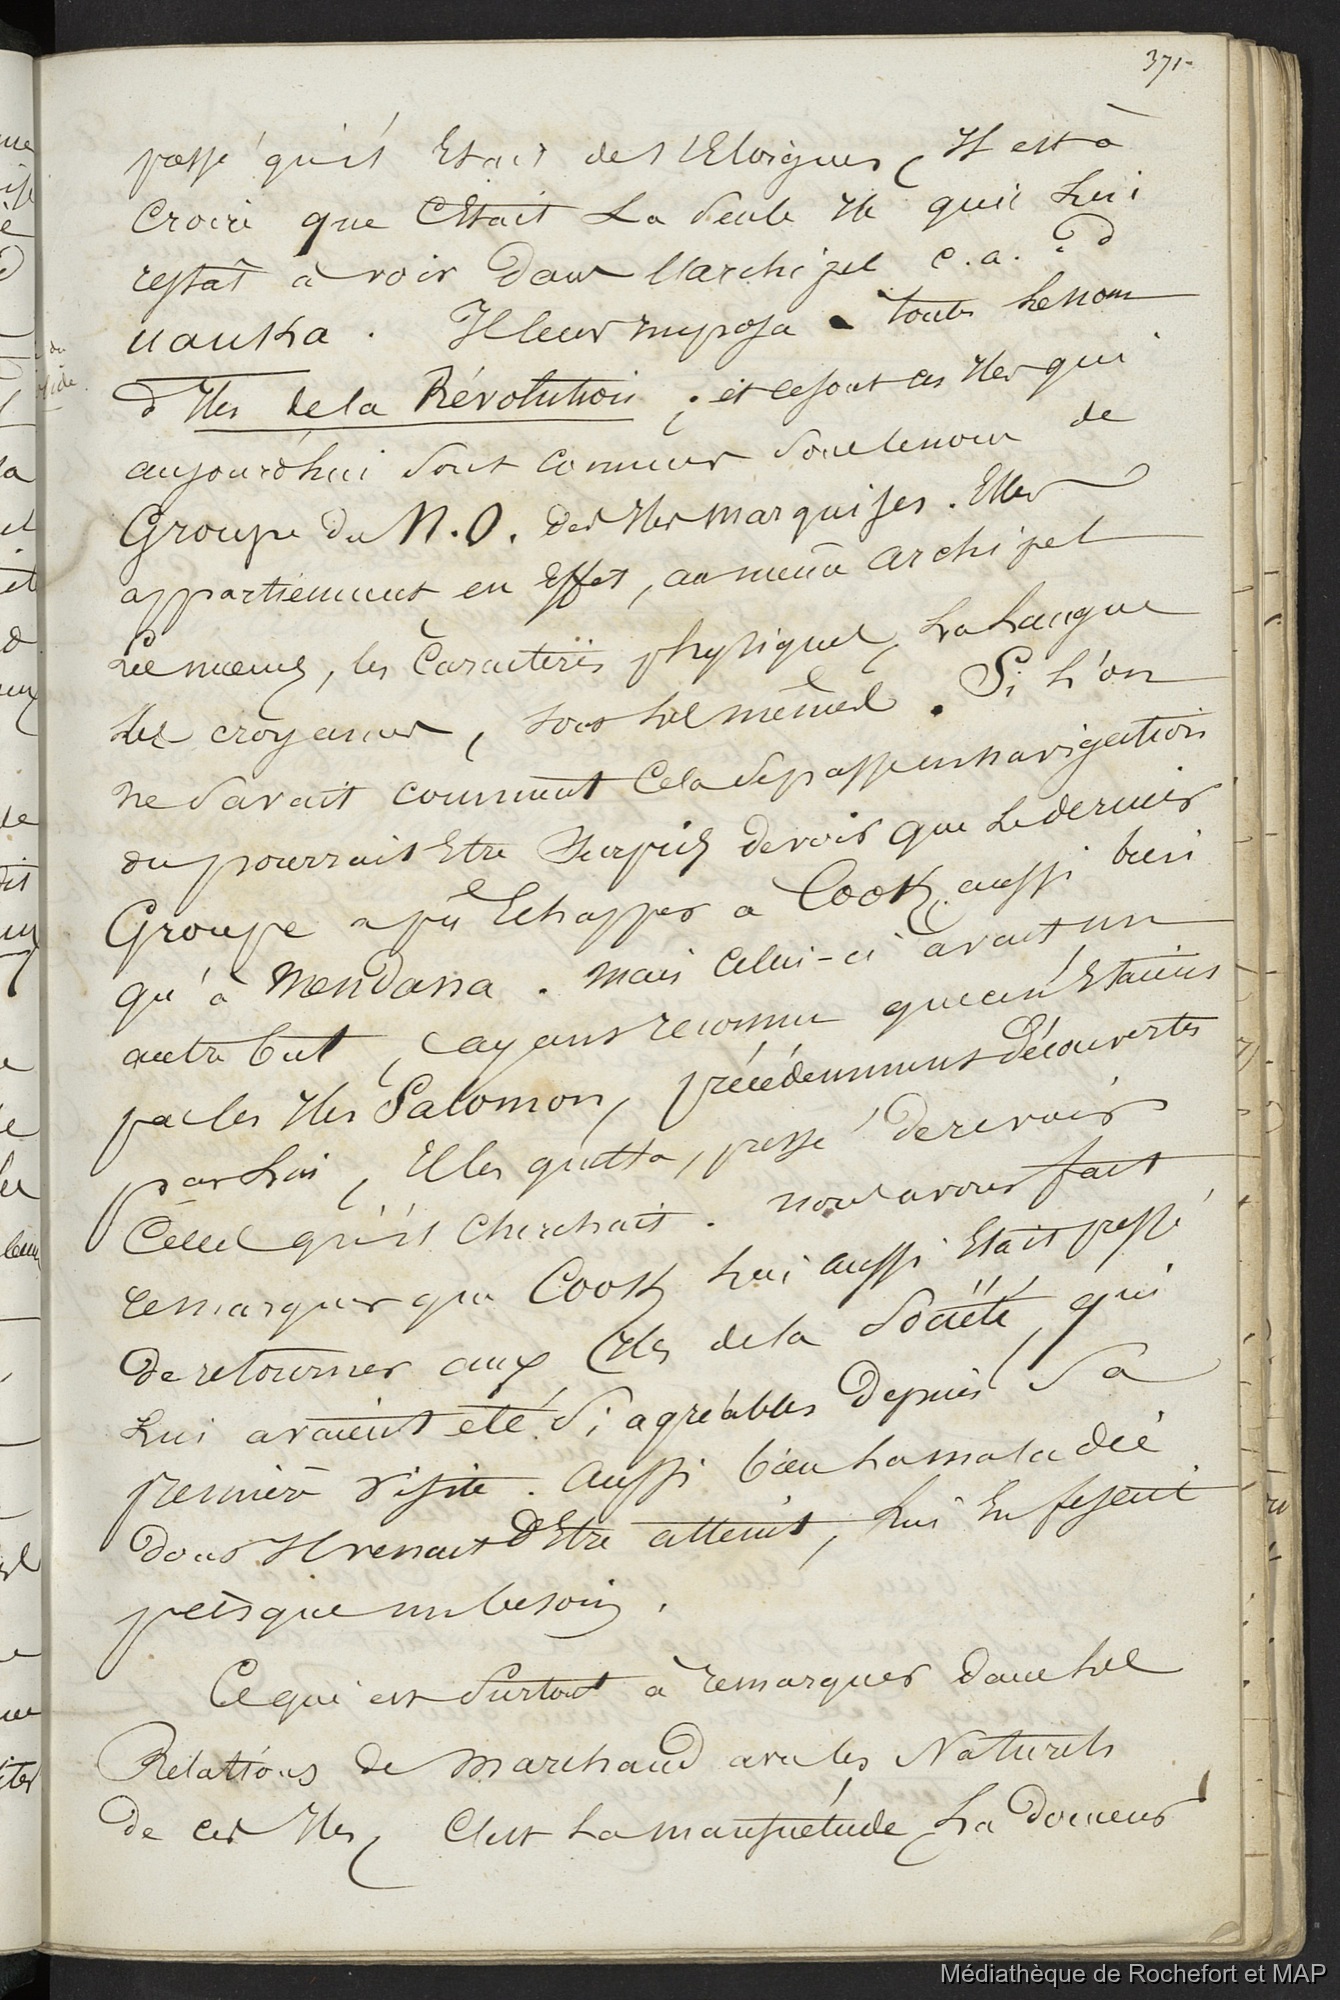 371-
pressé qu'il Etait de s'Eloigner, Il est à
croire que C'Etait La seule Ile qu'il Lui
restât à voir Dans l'archipel c. a. d
uauka. Il leur imposa à toutes Le nom
d'Iles de la Révolution ; et ce sont ces Iles qui
aujourd'hui sont connues sous le nom de
Groupe du N.O. des Iles marquises. Elles
appartiennent en Effet, au même archipel
Les mœurs, les Caractères physiques, La Langue
Les croyances, sont Les mêmes. Si L'on
ne savait comment Cela se passe en navigation
on pourrait Etre Surpris de voir que Le dernier
Groupe a pu Echapper a Cook, aussi bien
qu'à Mendana. mais Celui-ci avait un
autre but, Layant reconnu que ce n'Etaient
pas les Iles Salomon, précédemment Découvertes
par Lui, Elles quitta, pressé de revoir
Celles qu'il Cherchait. nous avons fait
remarquer que Cook Lui aussi Etait pressé
De retourner aux Iles de la Société, qui
Lui avaient été si agréables Depuis Sa
première visite. aussi bien La maladie
dont Il venait D'Etre atteint, Lui En fesait
presque un besoin.
Ce qui est Surtout à remarquer dans Les
Relations de Marchand avec les Naturels
de ces Iles, C'est La mansuétude, La douceur
Médiathèque de Rochefort et MAP